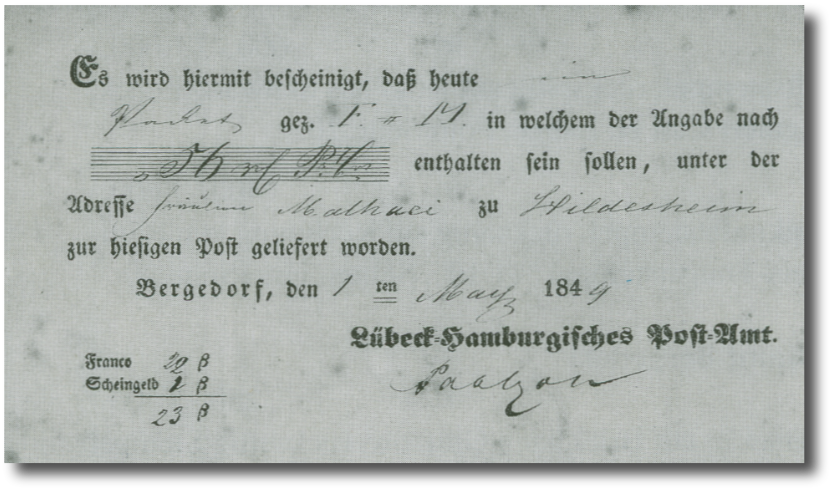 Es wird hiermit bescheinigt, daß heute ein
Packet gez. F. # 14. in welchem der Angabe nach
56 rf Pr. C. enthalten sein sollen, unter der
Adresse fräulein Malhaei zu Hildesheim
zur hiesigen Post geliefert worden.
Bergedorf, den 1 ten May 1849
Lübeck-Hamburgisches Post-Amt.
Paalzow
Franco β
Scheingeld β
23 β